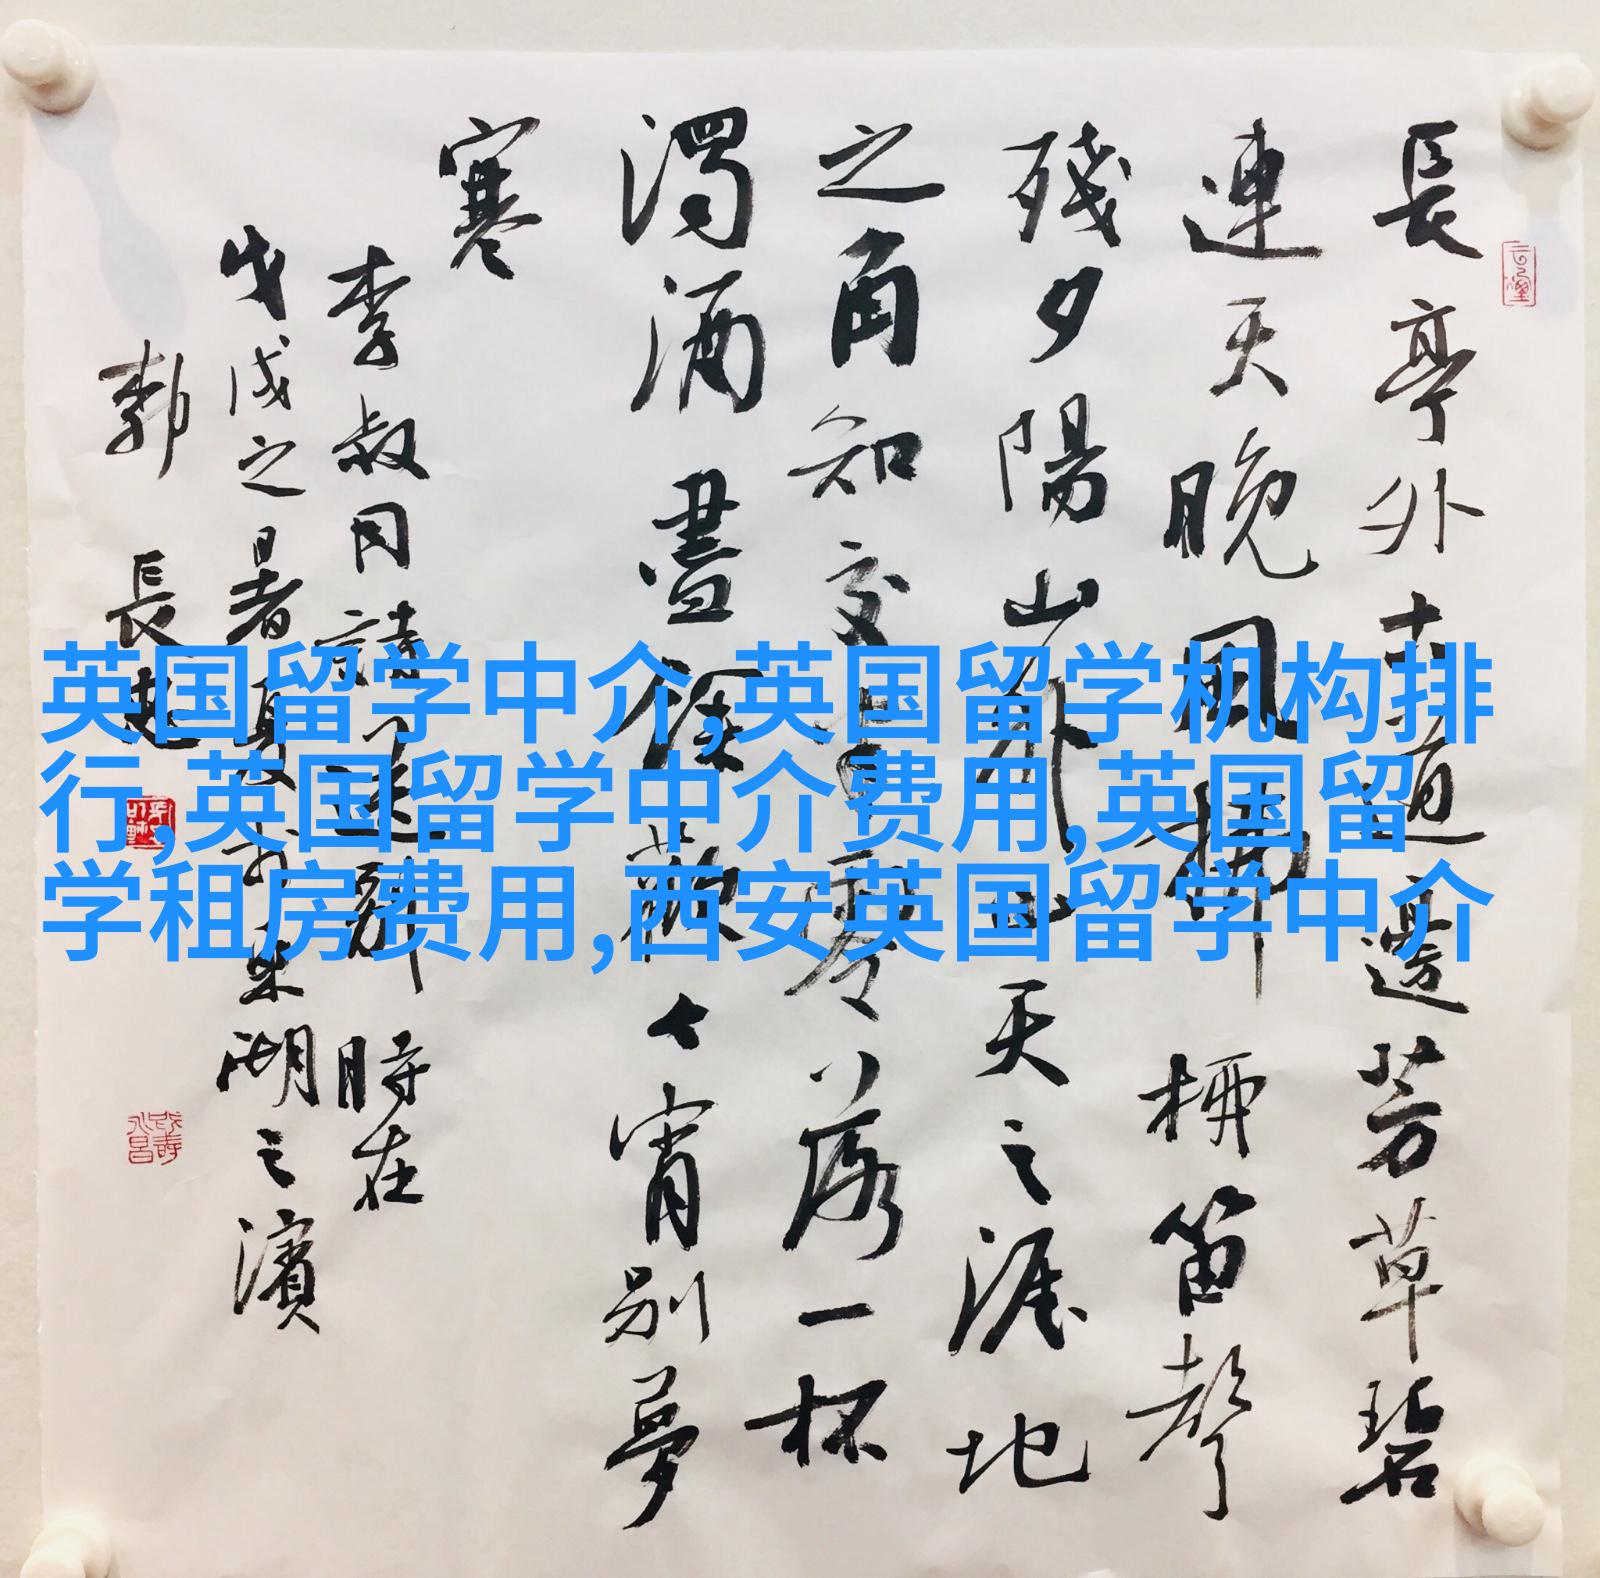 長亭外古道邊芳草碧
連天晚風拂柳笛聲
殘夕陽山外山天之涯地
之角知交半零落一杯
濁酒盡餘歡今宵別夢
寒
李叔同詩送別 時在
戊戌之暑夏於東湖之濱
郭長
英国留学中介,英国留学机构排
行,英国留学中介费用,英国留
学租房费用,西安英国留学中介